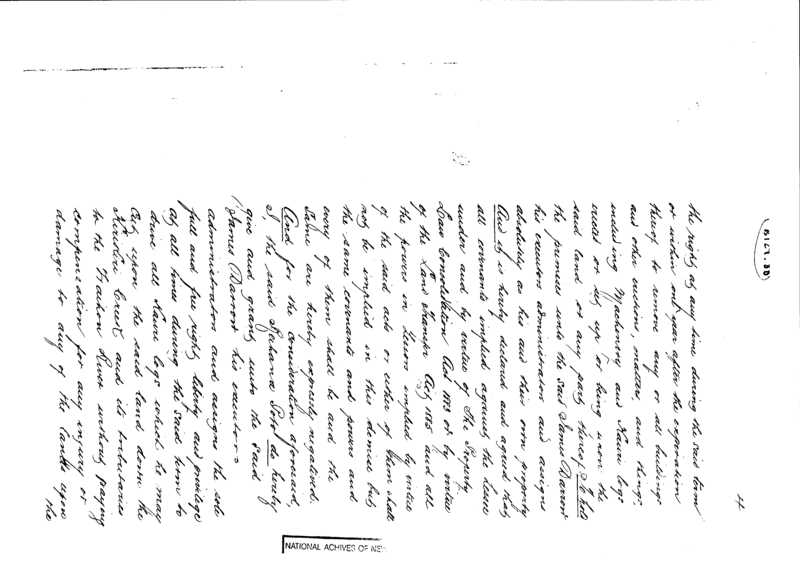 4
the right at any time during the said term
or within one year after the expiration
thereof to remove any or all buildings
and other erections, matters and things
including Machinery and Kauri logs
result or set up or being upon the
said land or any part thereof To hold
the premises unto the said James Darrow
his executors administrators and assigns
absolutely as his and their own property
And it is hereby declared and agreed that
all covenants implied against the lessee
under and by virtue of The Property
Law Consolidation Act 1883 or by virtue
of the Land Transfer Act 1885 and all
the powers in Lessor implied by virtue
of the said acts or either of them shall
not be implied in this demise but
the same covenants and powers and
every of them shall be and the
same are hereby expressly negatived.
And for the consideration aforesaid,
I, the said do hereby
give and grant unto the said
James Darrow his executors
administrators and assigns the sole
full and free right liberty and privilege
at all times during the said term to
drive all Kauri logs which he may
cut upon the said land down the
Creek and its tributaries
to the River without paying
compensation for any injury or
damage to any of the lands upon
the
NATIONAL ACHIVES OF NEW